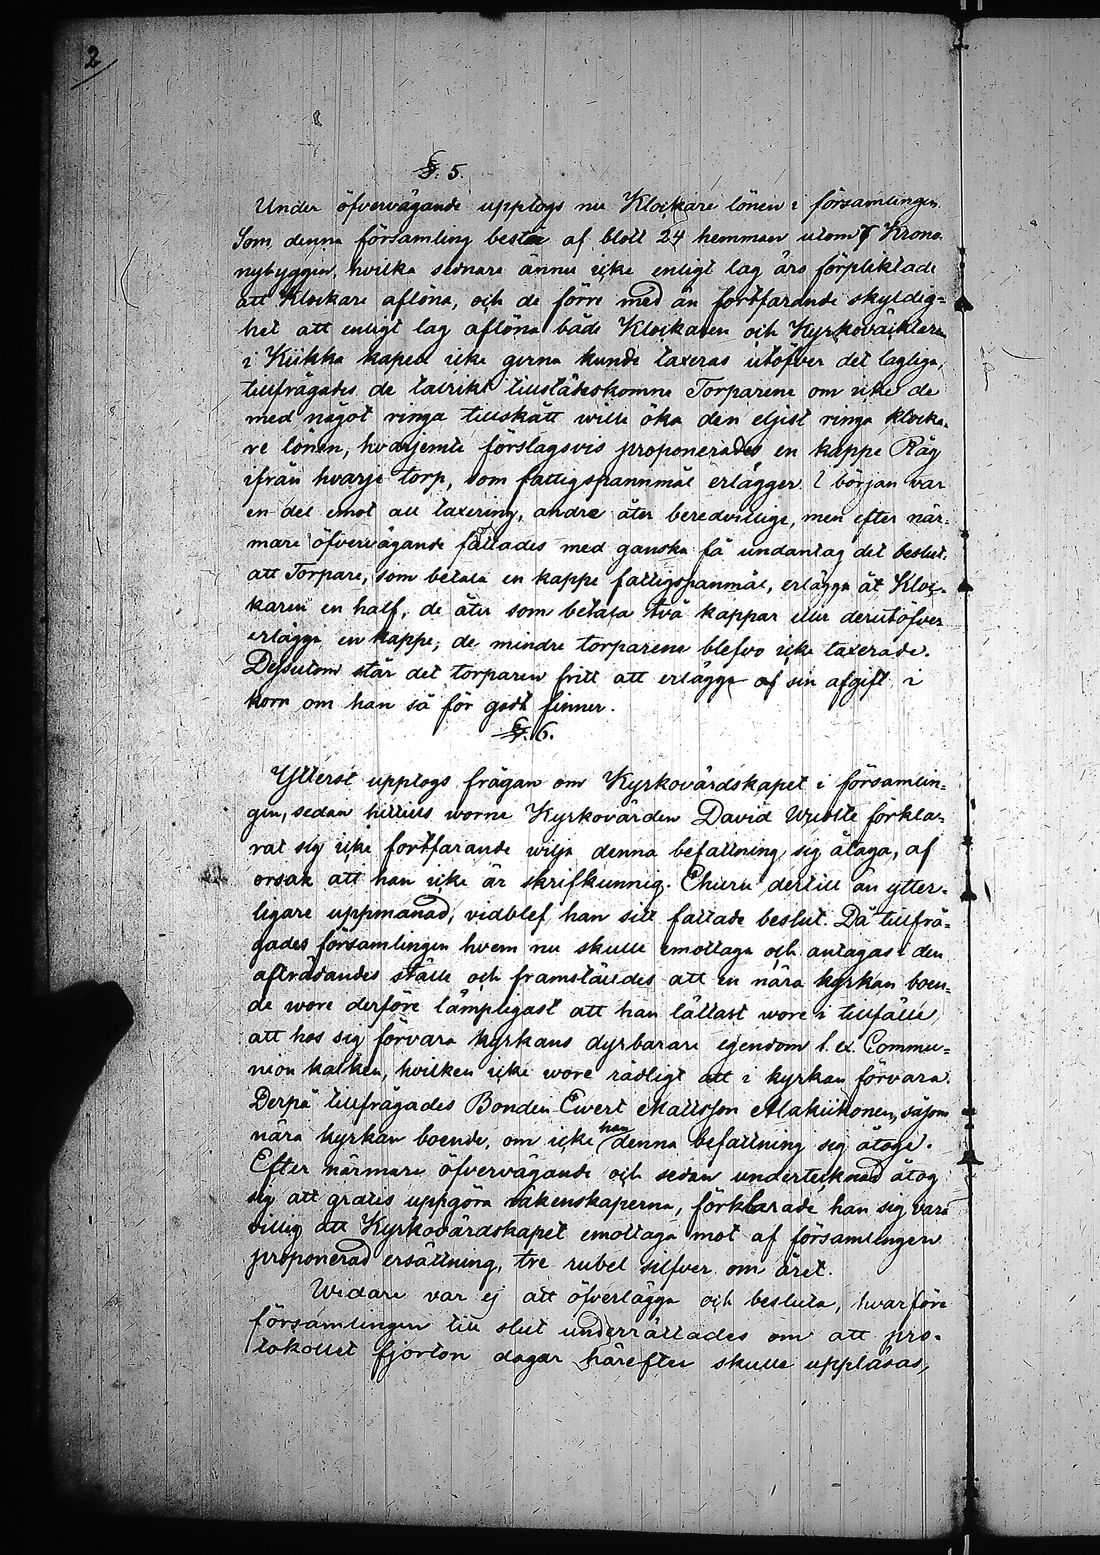 2
§. 5.
Under öfvervägande upptogs nu Klockare lönen i församlingen.
Som denna församling består af blott 24 hemman utom 7 Krono-
nybyggen, hvilka sednare ännu icke enligt lag äro förpliktade
att Klockare aflöna, och de förre med än fortfarande skyldig=
het att enligt lag aflöna både Klockaren och Kyrkoväktaren
i Kiikka kapell icke gerna kunde taxeras utöfver det lagliga,
tillfrågades de talrikt tillstädeskomne Torparene om icke de
med något ringa tillskått wille öka den eljest ringa klocka-
re lönen, hvarjemte förslagsvis proponerades en kappe Råg
ifrån hvarje torp, som fattigspannmål erlägger. I början var
en del emot all taxering, andre åter beredvillige, men efter när-
mare öfvervägande fattades med ganska få undantag det beslut
att Torpare, som betala en kappe fattigspanmål, erlägga åt Kloc-
karen en half, de åter som betala två kappar eller derutöfver
erlägga en kappe; de mindre torparene blefvo icke taxerade.
Dessutom står det torparen fritt att erlägga af sin afgift i
korn om han så för godt finner.
§. 6.
Ytterst upptogs frågan om Kyrkovärdskapet i församlin=
gen, sedan hittills worne Kyrkovärden David förkla-
rat sig icke fortfarande wilja denna befattning sig åtaga, af
orsak att han icke är skrifkunnig. Ehuru dertill än ytter-
ligare uppmanad, vidblef han sitt fattade beslut. Då tillfrå=
gades församlingen hvem nu skulle emottaga och antagas i den
afträdandes ställe och framställdes att en nära kyrkan boen=
de wore derföre lämpligast att han lättast wore i tillfälle,
att hos sig förvara kyrkans dyrbarare egendom t. ex. Commu=
nion kalken, hvilken icke wore rådligt att i kyrkan förvara.
Derpå tillfrågades Bonden Evert Mattsson Alakiikonen, såsom
nära kyrkan boende, om icke han denna befattning sig åtoge.
Efter närmare öfvervägande och sedan undertecknad åtog
sig att gratis uppgöra räkenskaperna, förklarade han sig vara
villig att Kyrkovärdskapet emottaga mot af församlingen
proponerad ersättning, tre rubel silfver om året.
Widare var ej att öfverlägga och besluta, hvarföre
församlingen till slut underrättades om att pro-
tokollet fjorton dagar härefter skulle uppläsas,